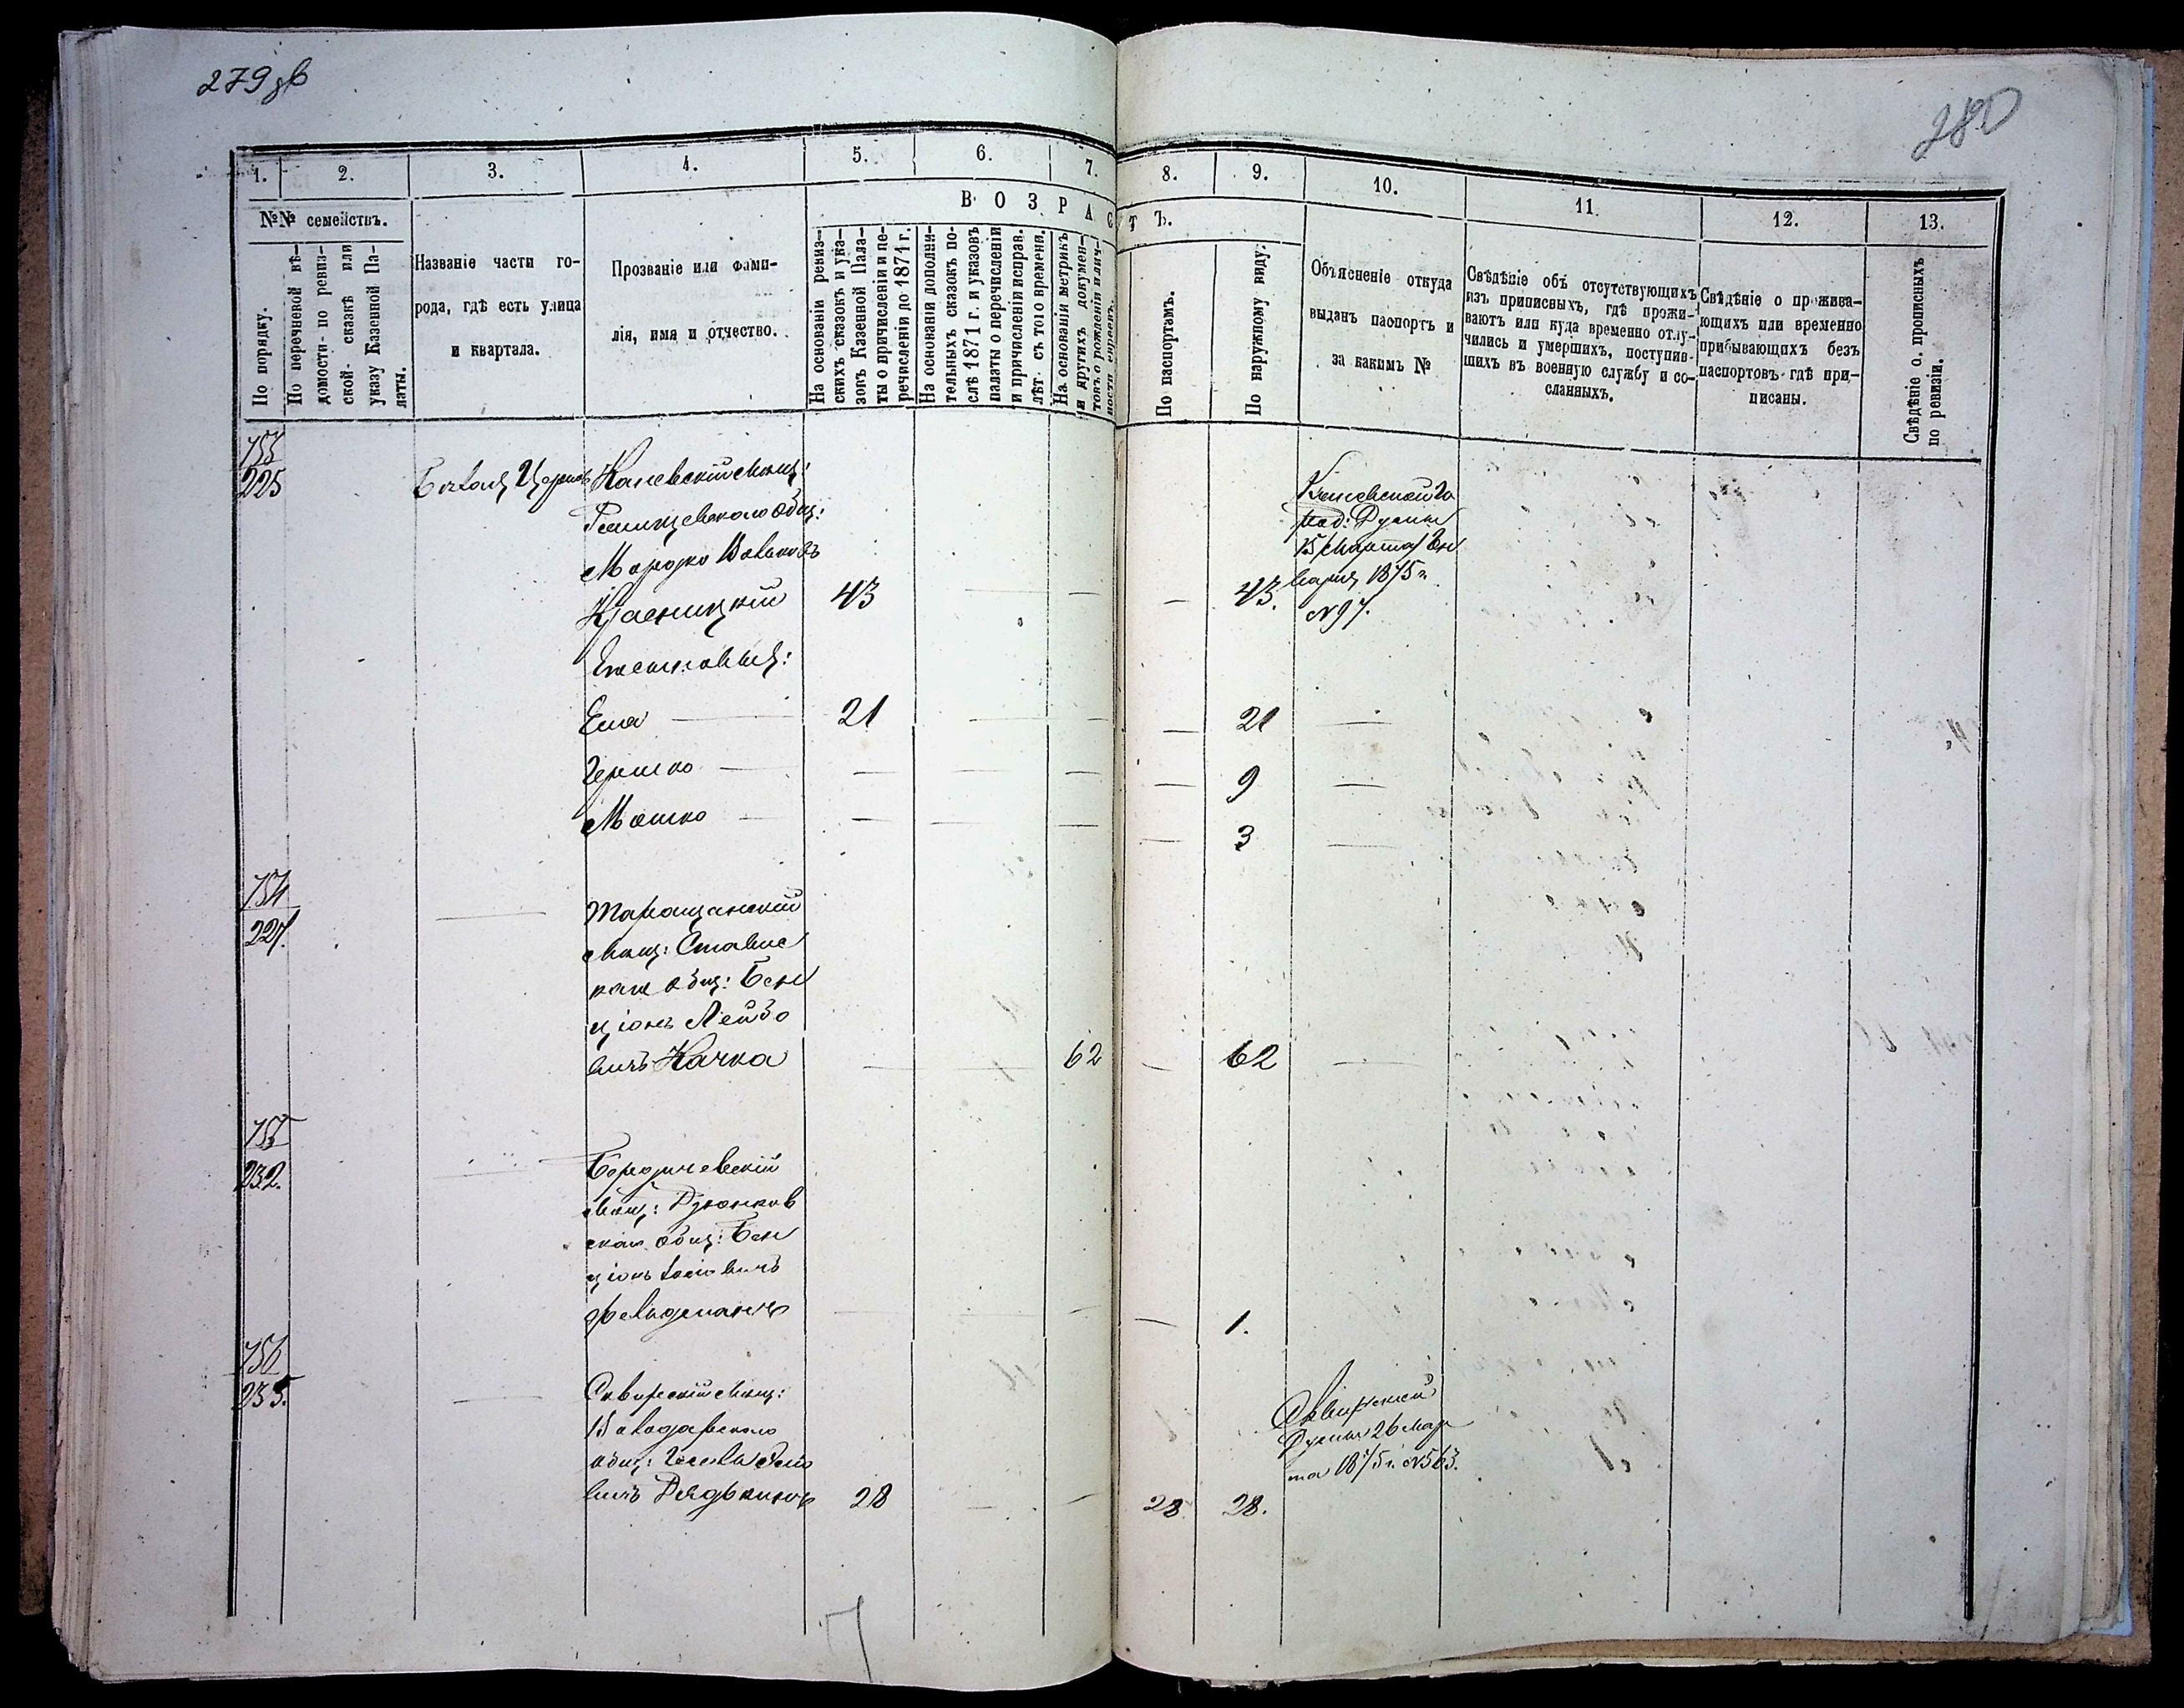 279 об
280
1.
2.
3.
4.
5.
6.
7.
8.
9.
10.
11.
12.
13.
№№ семействъ.
ВОЗРАСТЪ.
По порядку.
По перечневой вѣ-
домости- по ревиз-
ской- сказкѣ или
указу Казенной Па-
латы.
Названіе части го-
рода, гдѣ есть улица
и квартала.
Прозваніе или фами-
лія, имя и отчество.
На основаніи ревиз-
скихъ сказокъ и ука-
зокъ Казенной Пала-
ты о причисленіи и пе-
речисленіи до 1871 г.
На основаніи дополни-
тельныхъ сказокъ по-
слѣ 1871 г. и указовъ
палаты о перечисленіи
и причисленіи исправ.
лѣт. съ того времени.
На основаніи метрикъ
и другихъ докумен-
товъ о рожденіи и лич-
ности евреевъ.
По паспортамъ.
По наружному виду.
Объясненіе откуда
выданъ паспортъ и
за какимъ №
Свѣдѣніе объ отсутствующихъ
изъ приписныхъ, гдѣ прожи-
ваютъ или куда временно отлу-
чились и умершихъ, поступив-
шихъ въ военную службу и со-
сланныхъ.
Свѣдѣніе о прожива-
ющихъ или временно
прибывающихъ безъ
паспортовъ гдѣ при-
писаны.
Свѣдѣніе о. прописныхъ
по ревизіи.
753
225
Каневскій мѣщ:
общ:
Красницкій 43 — — — 43.
Его сыновья:
Ема — 21 — — — 21 —
Гершко — — — — — 9 —
Мошко — — — — — 3 —
Думы
15 Марта
1875 г.
№97.
754
227.
— Таращанскій
мѣщ: Ставис
каго общ: Бен
ціонъ Лейбо
вичъ Качка — — 62 — 62 —
755
232.
— Бердичевскій
мѣщ: Дзюньков
скаго общ: Бен
ціонъ
Фельдманъ — — — — 1.
756
235.
— Сквирскій мѣщ:
Володарскаго
общ:
вичъ 28 — — 28 28.
Сквирской
Думы 26 Мар
та 1875 г. №563.